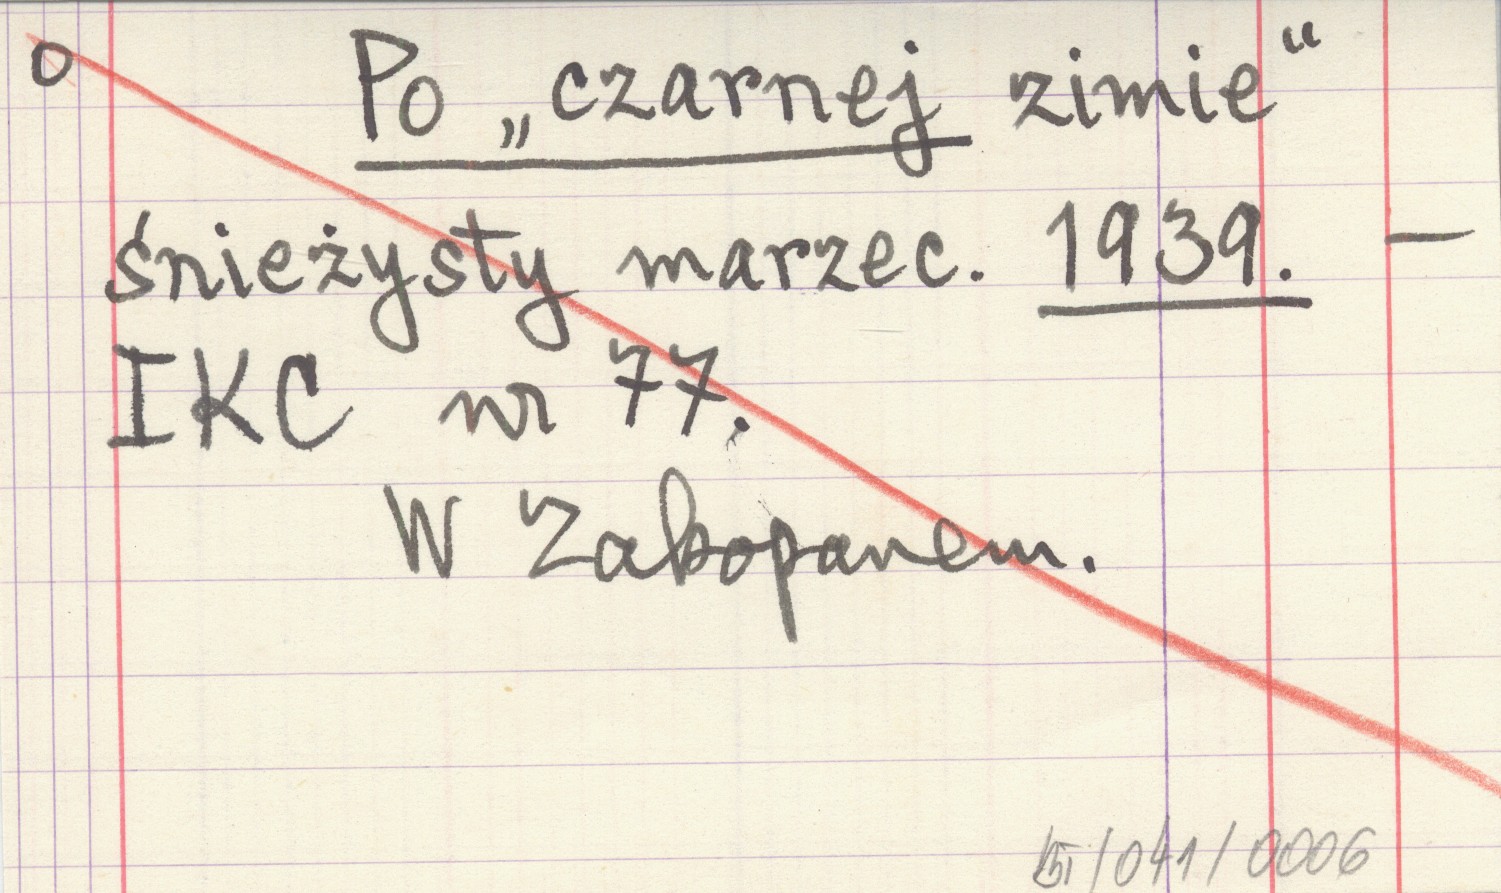 O
Po „czarnej zimie“
śnieżysty marzec. 1939. —
IKC nr 77.
W Zakopanem.
/041/0006